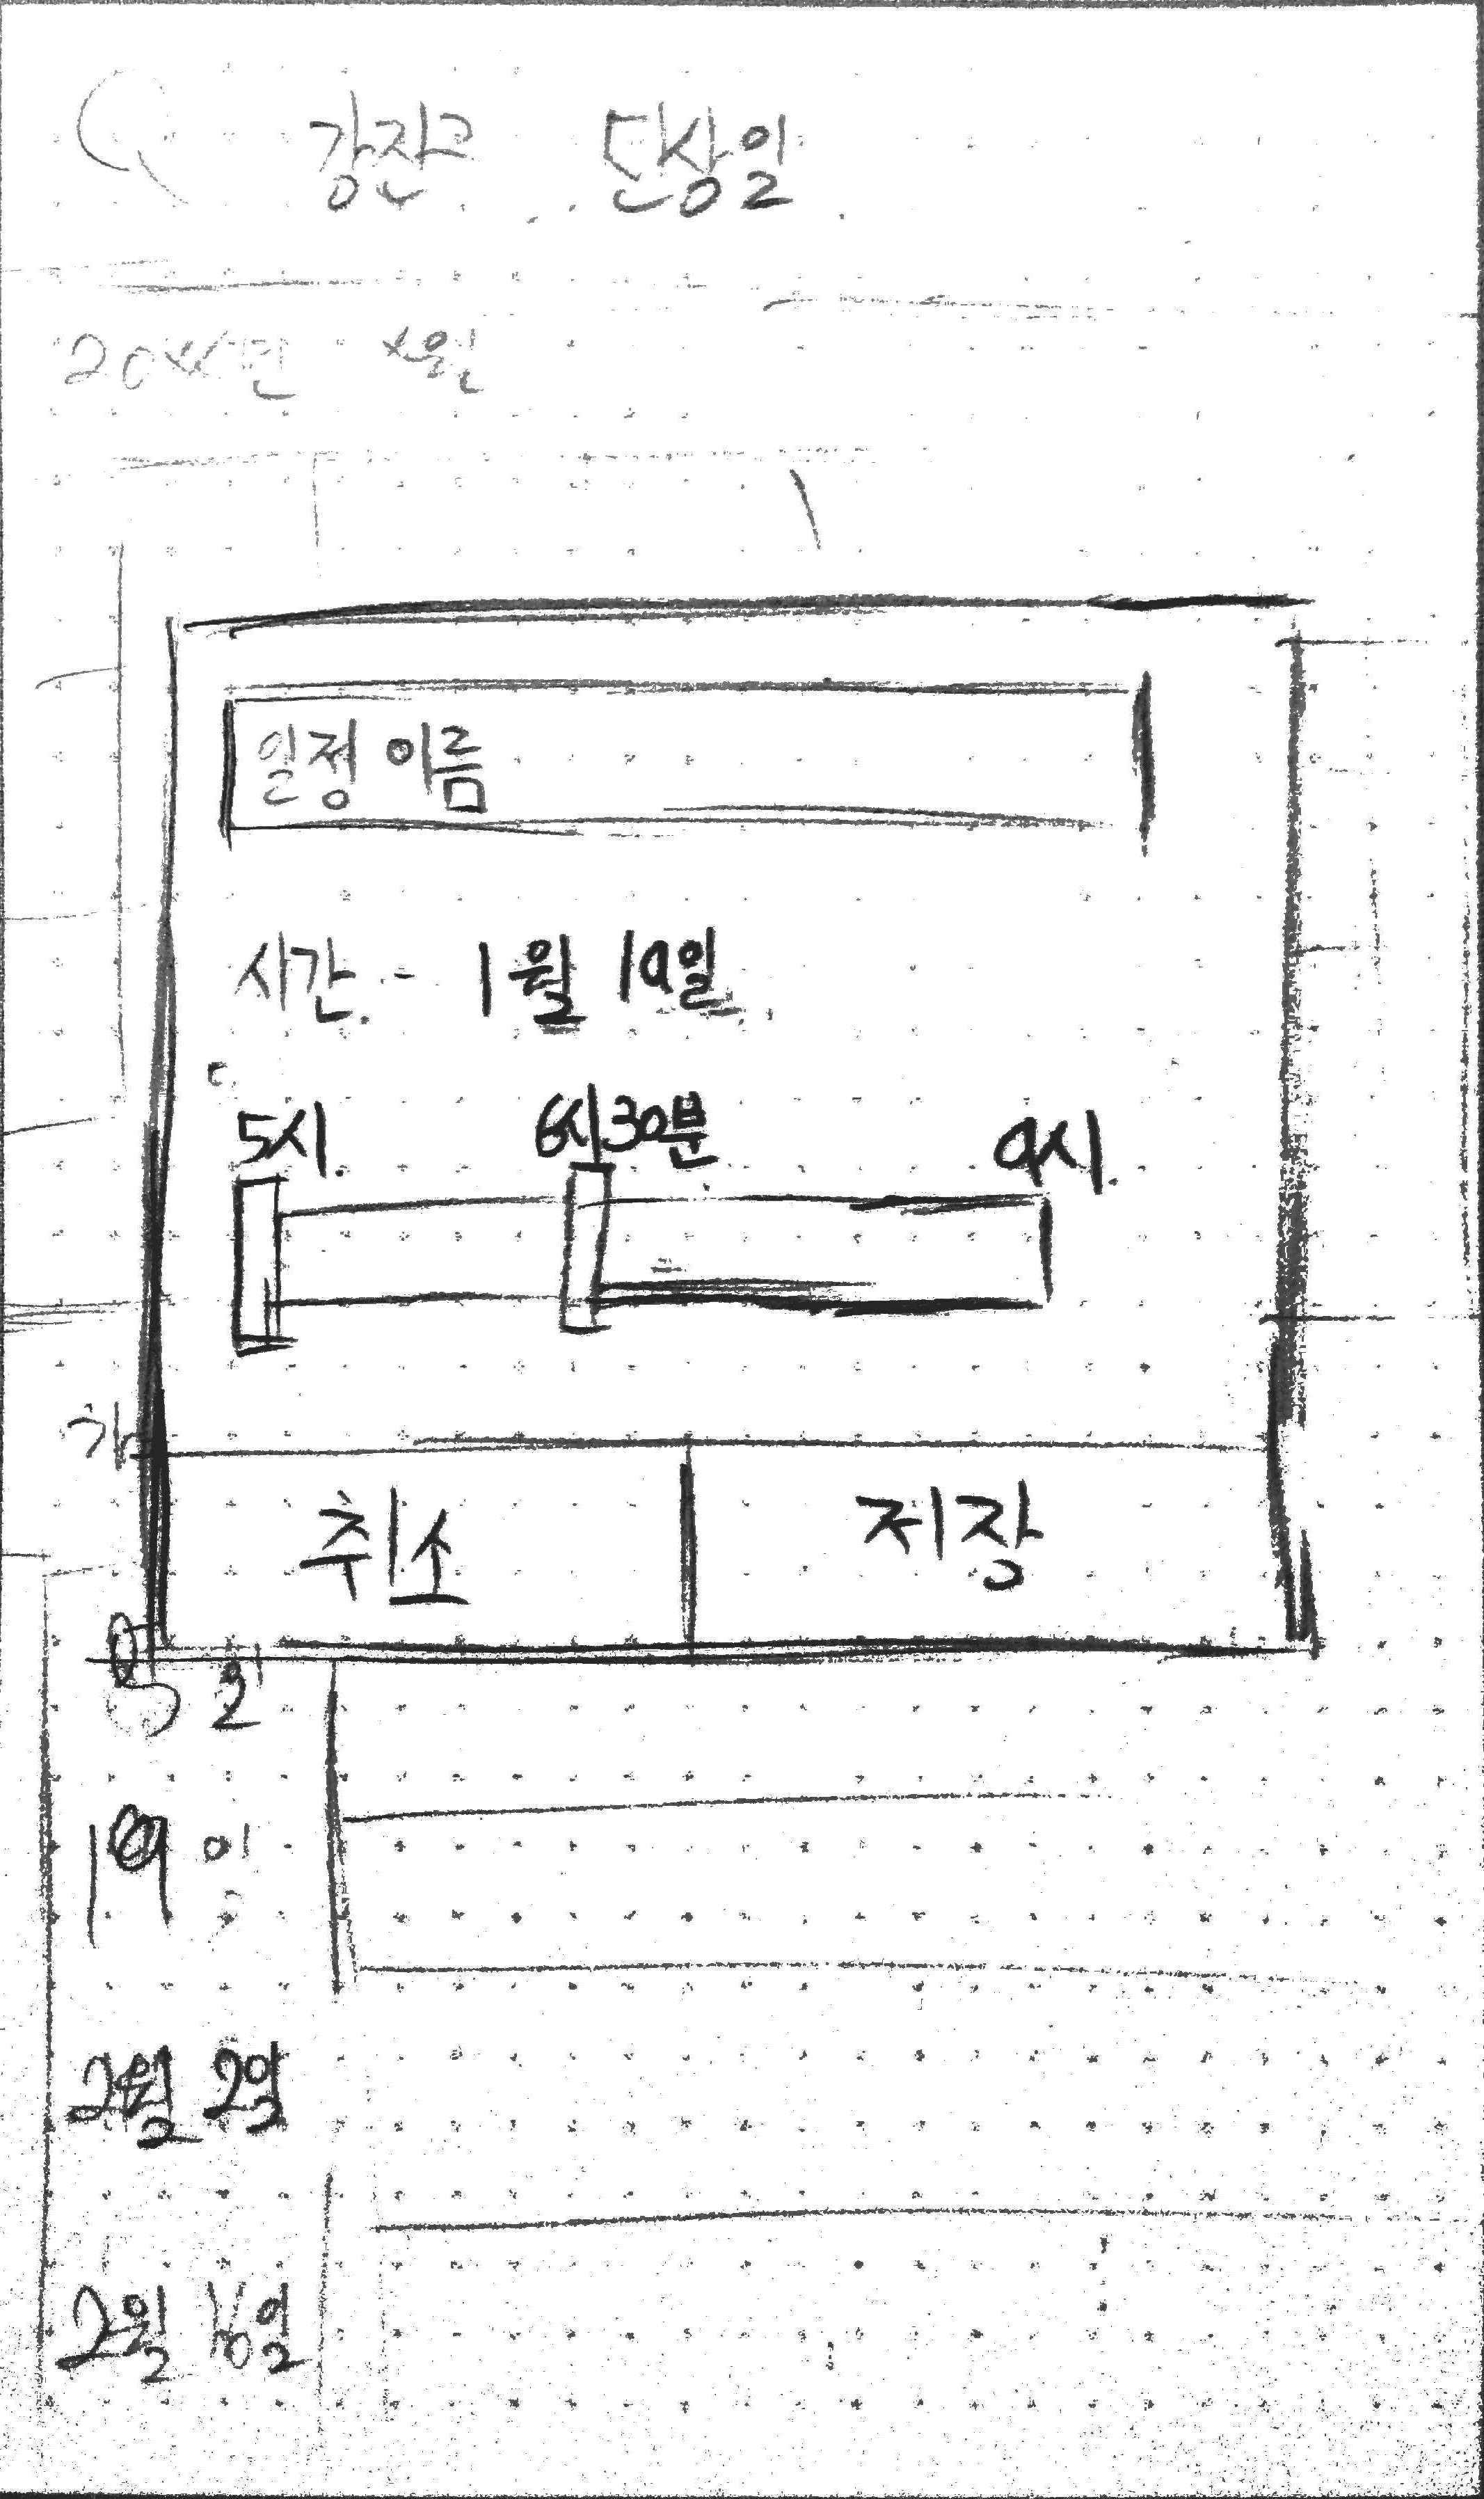 강진고 단상일
20xx년 x월
일정 이름
시간 - 1월 19일
5시 6시 30분 9시
취소 저장
2월 2일
2월 16일